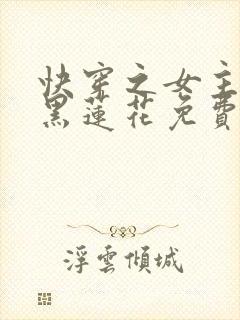 快穿之女主
黑蓮花免費
浮雲傾城